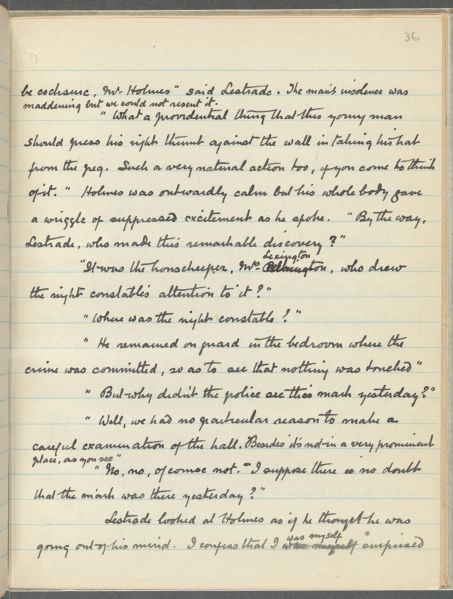 36
be cocksure, Mr Holmes" said Lestrade. The man's insolence was
maddening but we could not resent it.
"What a providential thing that this young man
should press his right thumb against the wall in taking his hat
from the peg. Such a very natural action too, if you come to think
of it." Holmes was outwardly calm but his whole body gave
a wriggle of suppressed excitement as he spoke. "By the way,
Lestrade, who made this remarkable discovery?"
Lexington
"It was the housekeeper, Mrs , who drew
the night constable's attention to it?"
"Where was the night constable?"
"He remained on guard in the bedroom where the
crime was committed, so as to see that nothing was touched"
"But why didn't the police see this mark yesterday?"
"Well, we had no particular reason to make a
careful examination of the hall. Besides it's not in a very prominent
place, as you see"
"No, no, of course not. I suppose there is no doubt
that the mark was there yesterday?"
Lestrade looked at Holmes as if he thought he was
was myself
going out of his mind. I confess that I was myself surprised